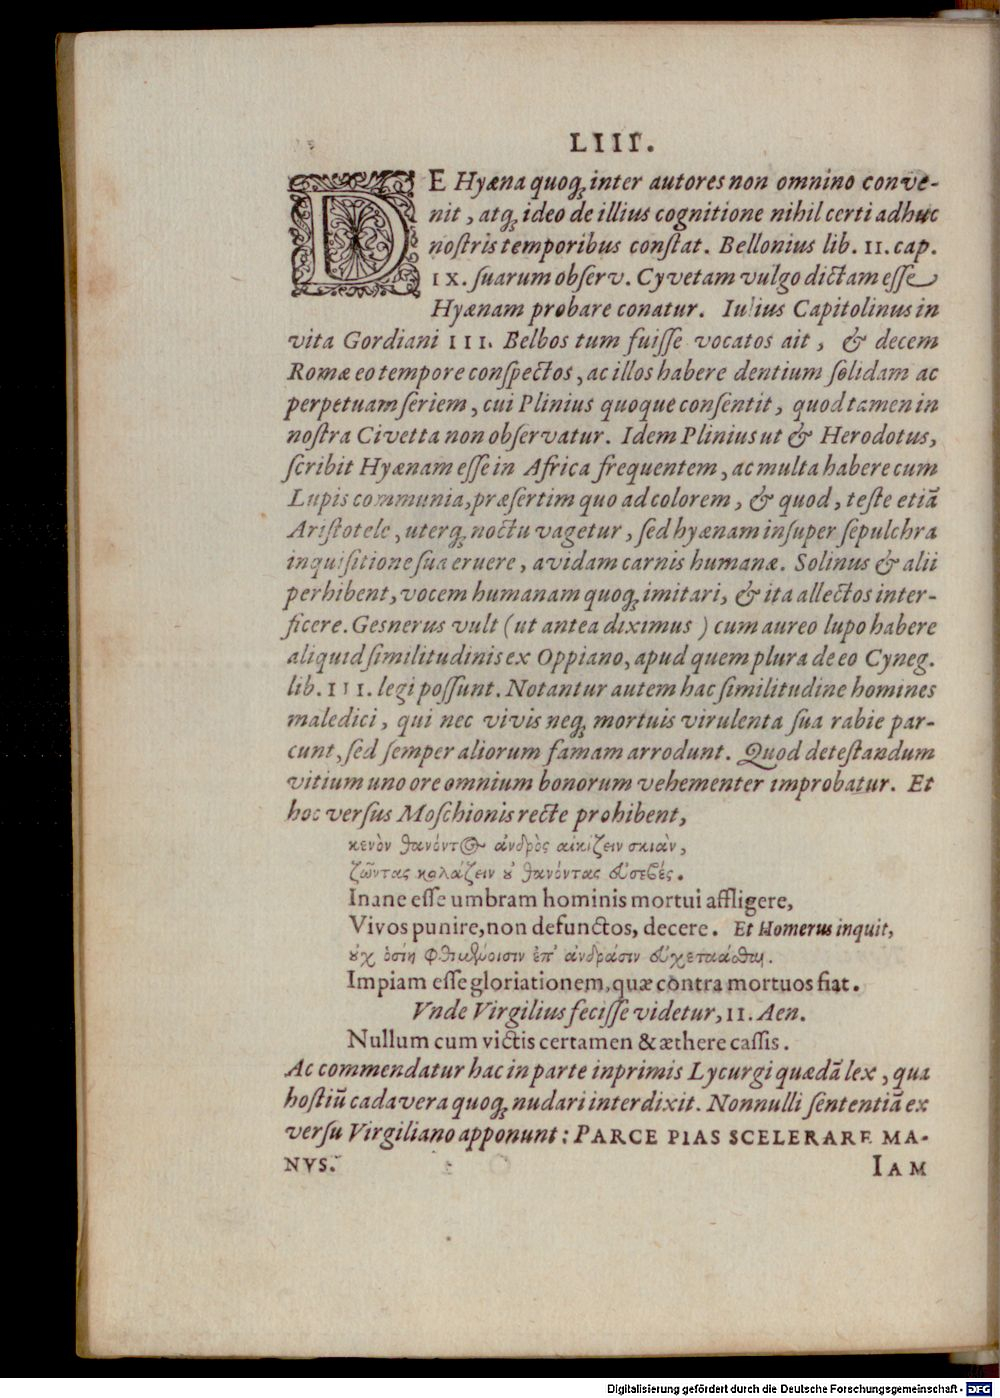 LIII.
DE Hyæna quoq; inter autores non omnino conve-
nit, atq; ideo de illius cognitione nihil certi adhuc
noſtris temporibus conſtat. Bellonius lib. II. cap.
IX. ſuarum obſerv. Cyvetam vulgo dictam eſſe
Hyænam probare conatur. Iulius Capitolinus in
vita Gordiani III. Belbos tum fuiſſe vocatos ait, & decem
Romæ eo tempore conſpectos, ac illos habere dentium ſolidam ac
perpetuam ſeriem, cui Plinius quoque conſentit, quod tamen in
noſtra Civetta non obſervatur. Idem Plinius ut & Herodotus,
ſcribit Hyænam eſſe in Africa frequentem, ac multa habere cum
Lupis communia, præſertim quo ad colorem, & quod, teſte etiā
Ariſtotele, uterq; noctu vagetur, ſed hyænam inſuper ſepulchra
inquiſitione ſua eruere, avidam carnis humanæ. Solinus & alii
perhibent, vocem humanam quoq; imitari, & ita allectos inter-
ficere. Gesnerus vult (ut antea diximus) cum aureo lupo habere
aliquid ſimilitudinis ex Oppiano, apud quem plura de eo Cyneg.
lib. III. legi poſſunt. Notantur autem hac ſimilitudine homines
maledici, qui nec vivis neq; mortuis virulenta ſua rabie par-
cunt, ſed ſemper aliorum famam arrodunt. Quod deteſtandum
vitium uno ore omnium bonorum vehementer improbatur. Et
hoc verſus Moſchionis recte prohibent,
κενὸν θανόντος ἀνδρὸς αἰκίζειν σκιὰν,
ζῶντας κολάζειν οὐ θανόντας εὐσεβές.
Inane eſſe umbram hominis mortui affligere,
Vivos punire, non defunctos, decere. Et Homerus inquit,
οὐχ ὁσίη φθιμένοισιν ἐπ' ἀνδράσιν εὐχετάασθαι.
Impiam eſſe gloriationem, quæ contra mortuos fiat.
Vnde Virgilius feciſſe videtur, II. Aen.
Nullum cum victis certamen & æthere caſſis.
Ac commendatur hac in parte inprimis Lycurgi quædā lex, qua
hoſtiū cadavera quoq; nudari interdixit. Nonnulli ſententiā ex
verſu Virgiliano apponunt: PARCE PIAS SCELERARE MA-
NVS.
IAM
Digitalisierung gefördert durch die Deutsche Forschungsgemeinschaft - DFG